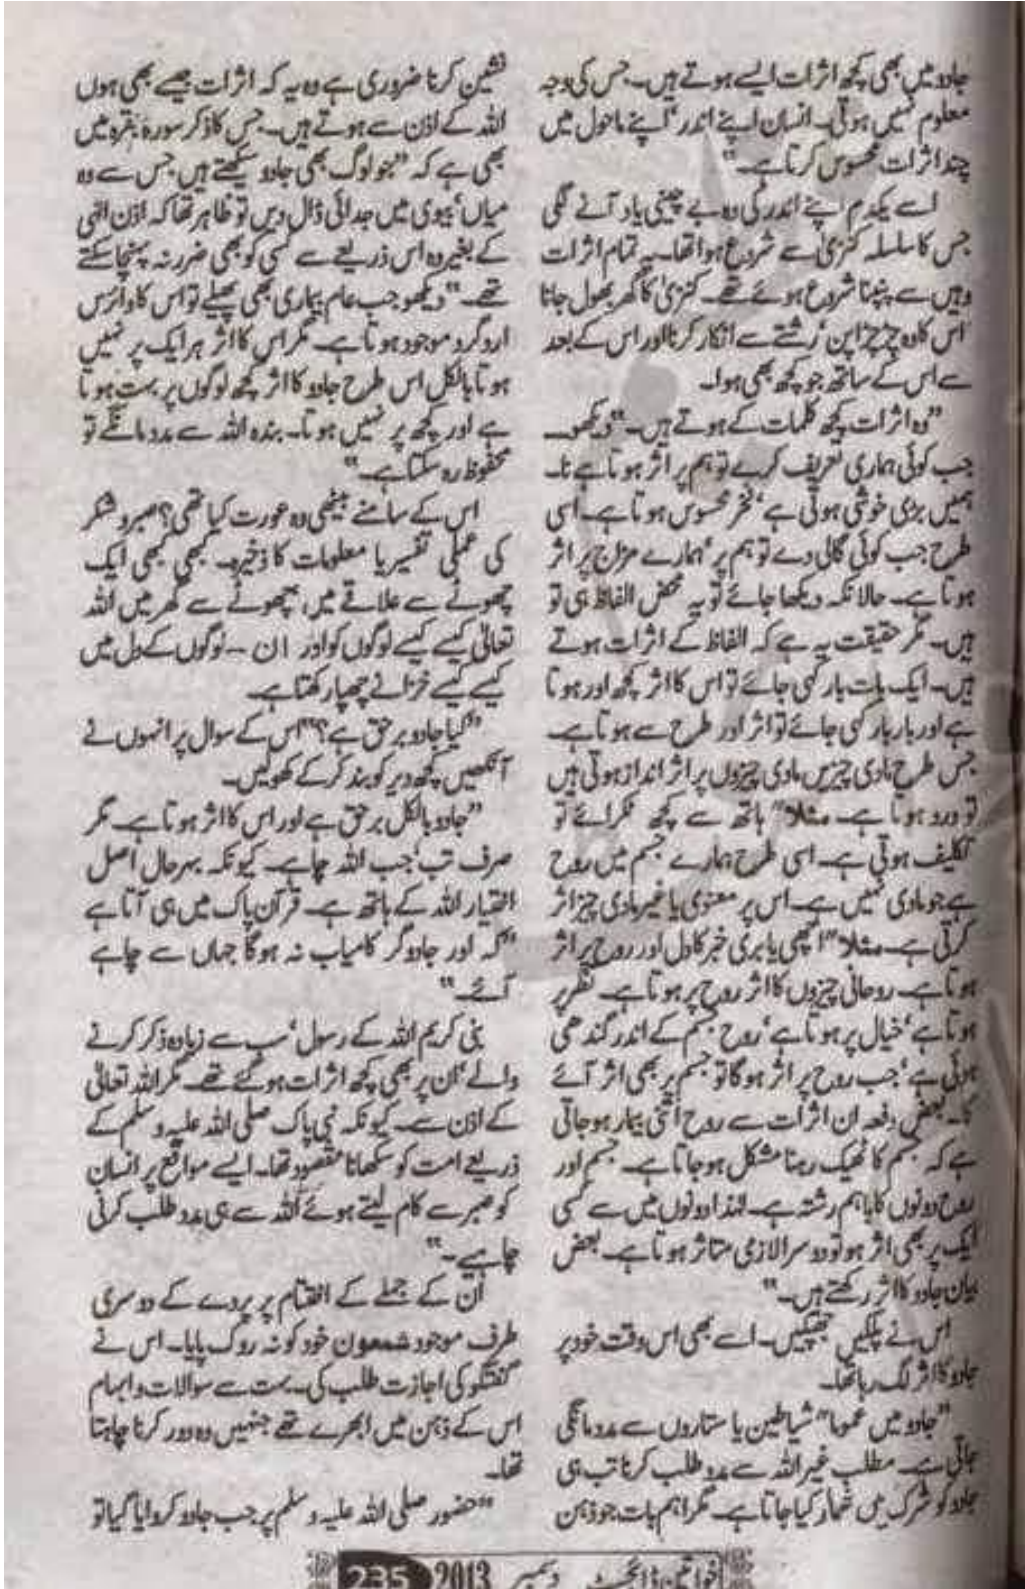 جادو میں بھی کچھ اثرات ایسے ہوتے ہیں۔ جس کی وجہ
معلوم نہیں ہوتی۔ انسان اپنے اندر‘ اپنے ماحول میں
چند اثرات محسوس کرتا ہے۔"
اسے یکدم اپنے اندر کی وہ بے چینی یاد آنے لگی
جس کا سلسلہ کنزیٰ سے شروع ہوا تھا۔ یہ تمام اثرات
وہیں سے پنپنا شروع ہوئے تھے۔ کنزیٰ کا گھر بھول جانا
اس کا وہ چڑچڑا پن‘ رشتے سے انکار کرنا اور اس کے بعد
سے اس کے ساتھ جو کچھ بھی ہوا۔
"وہ اثرات کچھ کلمات کے ہوتے ہیں۔" دیکھو۔
جب کوئی ہماری تعریف کرے تو ہم پر اثر ہوتا ہے نا۔
ہمیں بڑی خوشی ہوتی ہے‘ فخر محسوس ہوتا ہے۔ اسی
طرح جب کوئی گالی دے تو ہم پر‘ ہمارے مزاج پر اثر
ہوتا ہے۔ حالانکہ دیکھا جائے تو یہ محض الفاظ ہی تو
ہیں۔ مگر حقیقت یہ ہے کہ الفاظ کے اثرات ہوتے
ہیں۔ ایک بات بار کہی جائے تو اس کا اثر کچھ اور ہوتا
ہے اور بار بار کہی جائے تو اثر اور طرح سے ہوتا ہے۔
جس طرح مادی چیزیں مادی چیزوں پر اثر انداز ہوتی ہیں
تو درد ہوتا ہے۔ مثلا" ہاتھ سے کچھ ٹکرائے تو
تکلیف ہوتی ہے۔ اسی طرح ہمارے جسم میں روح
ہے جو مادی نہیں ہے۔ اس پر معنوی یا غیر مادی چیز اثر
کرتی ہے۔ مثلا" اچھی یا بری خبر کا دل اور روح پر اثر
ہوتا ہے۔ روحانی چیزوں کا اثر روح پر ہوتا ہے۔ نظر پر
ہوتا ہے‘ خیال پر ہوتا ہے‘ روح جسم کے اندر گندھی
ہوئی ہے‘ جب روح پر اثر ہوگا تو جسم پر بھی اثر آئے
گا۔ بعض دفعہ ان اثرات سے روح اتنی بیمار ہوجاتی
ہے کہ جسم کا ٹھیک رہنا مشکل ہوجاتا ہے۔ جسم اور
روح دونوں کا باہم رشتہ ہے۔ لہٰذا دونوں میں سے کسی
ایک پر بھی اثر ہو تو دوسرا لازمی متاثر ہوتا ہے۔ بعض
بیان جادو کا اثر رکھتے ہیں۔"
اس نے پلکیں جھپکیں۔ اسے بھی اس وقت خود پر
جادو کا اثر لگ رہا تھا۔
"جادو میں عموما" شیاطین یا ستاروں سے مدد مانگی
جاتی ہے۔ مطلب غیر اللہ سے مدد طلب کرنا تب ہی
جادو کو شرک میں شمار کیا جاتا ہے۔ مگر اہم بات جو ذہن
نشین کرنا ضروری ہے وہ یہ کہ اثرات جیسے بھی ہوں
اللہ کے اذن سے ہوتے ہیں۔ جس کا ذکر سورۃ بقرہ میں
بھی ہے کہ "جو لوگ بھی جادو سیکھتے ہیں جس سے وہ
میاں‘ بیوی میں جدائی ڈال دیں تو ظاہر تھا کہ اذن الٰہی
کے بغیر وہ اس ذریعے سے کسی کو بھی ضرر نہ پہنچا سکتے
تھے۔" دیکھو جب عام بیماری بھی پھیلے تو اس کا وائرس
ارد گرد موجود ہوتا ہے۔ مگر اس کا اثر ہر ایک پر نہیں
ہوتا بالکل اس طرح جادو کا اثر کچھ لوگوں پر بہت ہوتا
ہے اور کچھ پر نہیں ہوتا۔ بندہ اللہ سے مدد مانگے تو
محفوظ رہ سکتا ہے۔"
اس کے سامنے بیٹھی وہ عورت کیا تھی؟ صبر و شکر
کی عملی تفسیر یا معلومات کا ذخیرہ۔ کبھی کبھی ایک
چھوٹے سے علاقے میں‘ چھوٹے سے گھر میں اللہ
تعالیٰ کیسے کیسے لوگوں کو اور ان ۔۔ لوگوں کے دل میں
کیسے کیسے خزانے چھپا رکھتا ہے۔
"کیا جادو برحق ہے؟" اس کے سوال پر انہوں نے
آنکھیں کچھ دیر کو بند کرکے کھولیں۔
"جادو بالکل برحق ہے اور اس کا اثر ہوتا ہے۔ مگر
صرف تب‘ جب اللہ چاہے۔ کیونکہ بہرحال اصل
اختیار اللہ کے ہاتھ ہے۔ قرآن پاک میں ہی آتا ہے
"کہ اور جادوگر کامیاب نہ ہوگا جہاں سے چاہے
آئے۔"
نبی کریم اللہ کے رسول‘ سب سے زیادہ ذکر کرنے
والے‘ ان پر بھی کچھ اثرات ہوگئے تھے۔ مگر اللہ تعالیٰ
کے اذن سے۔ کیونکہ نبی پاک صلی اللہ علیہ وسلم کے
ذریعے امت کو سکھانا مقصود تھا۔ ایسے مواقع پر انسان
کو صبر سے کام لیتے ہوئے اللہ سے ہی مدد طلب کرنی
چاہیے۔"
ان کے جملے کے اختتام پر پردے کے دوسری
طرف موجود شمعون خود کو نہ روک پایا۔ اس نے
گفتگو کی اجازت طلب کی۔ بہت سے سوالات و ابہام
اس کے ذہن میں ابھرے تھے جنہیں وہ دور کرنا چاہتا
تھا۔
"حضور صلی اللہ علیہ وسلم پر جب جادو کروایا گیا تو
خواتین ڈائجسٹ دسمبر 2013 235